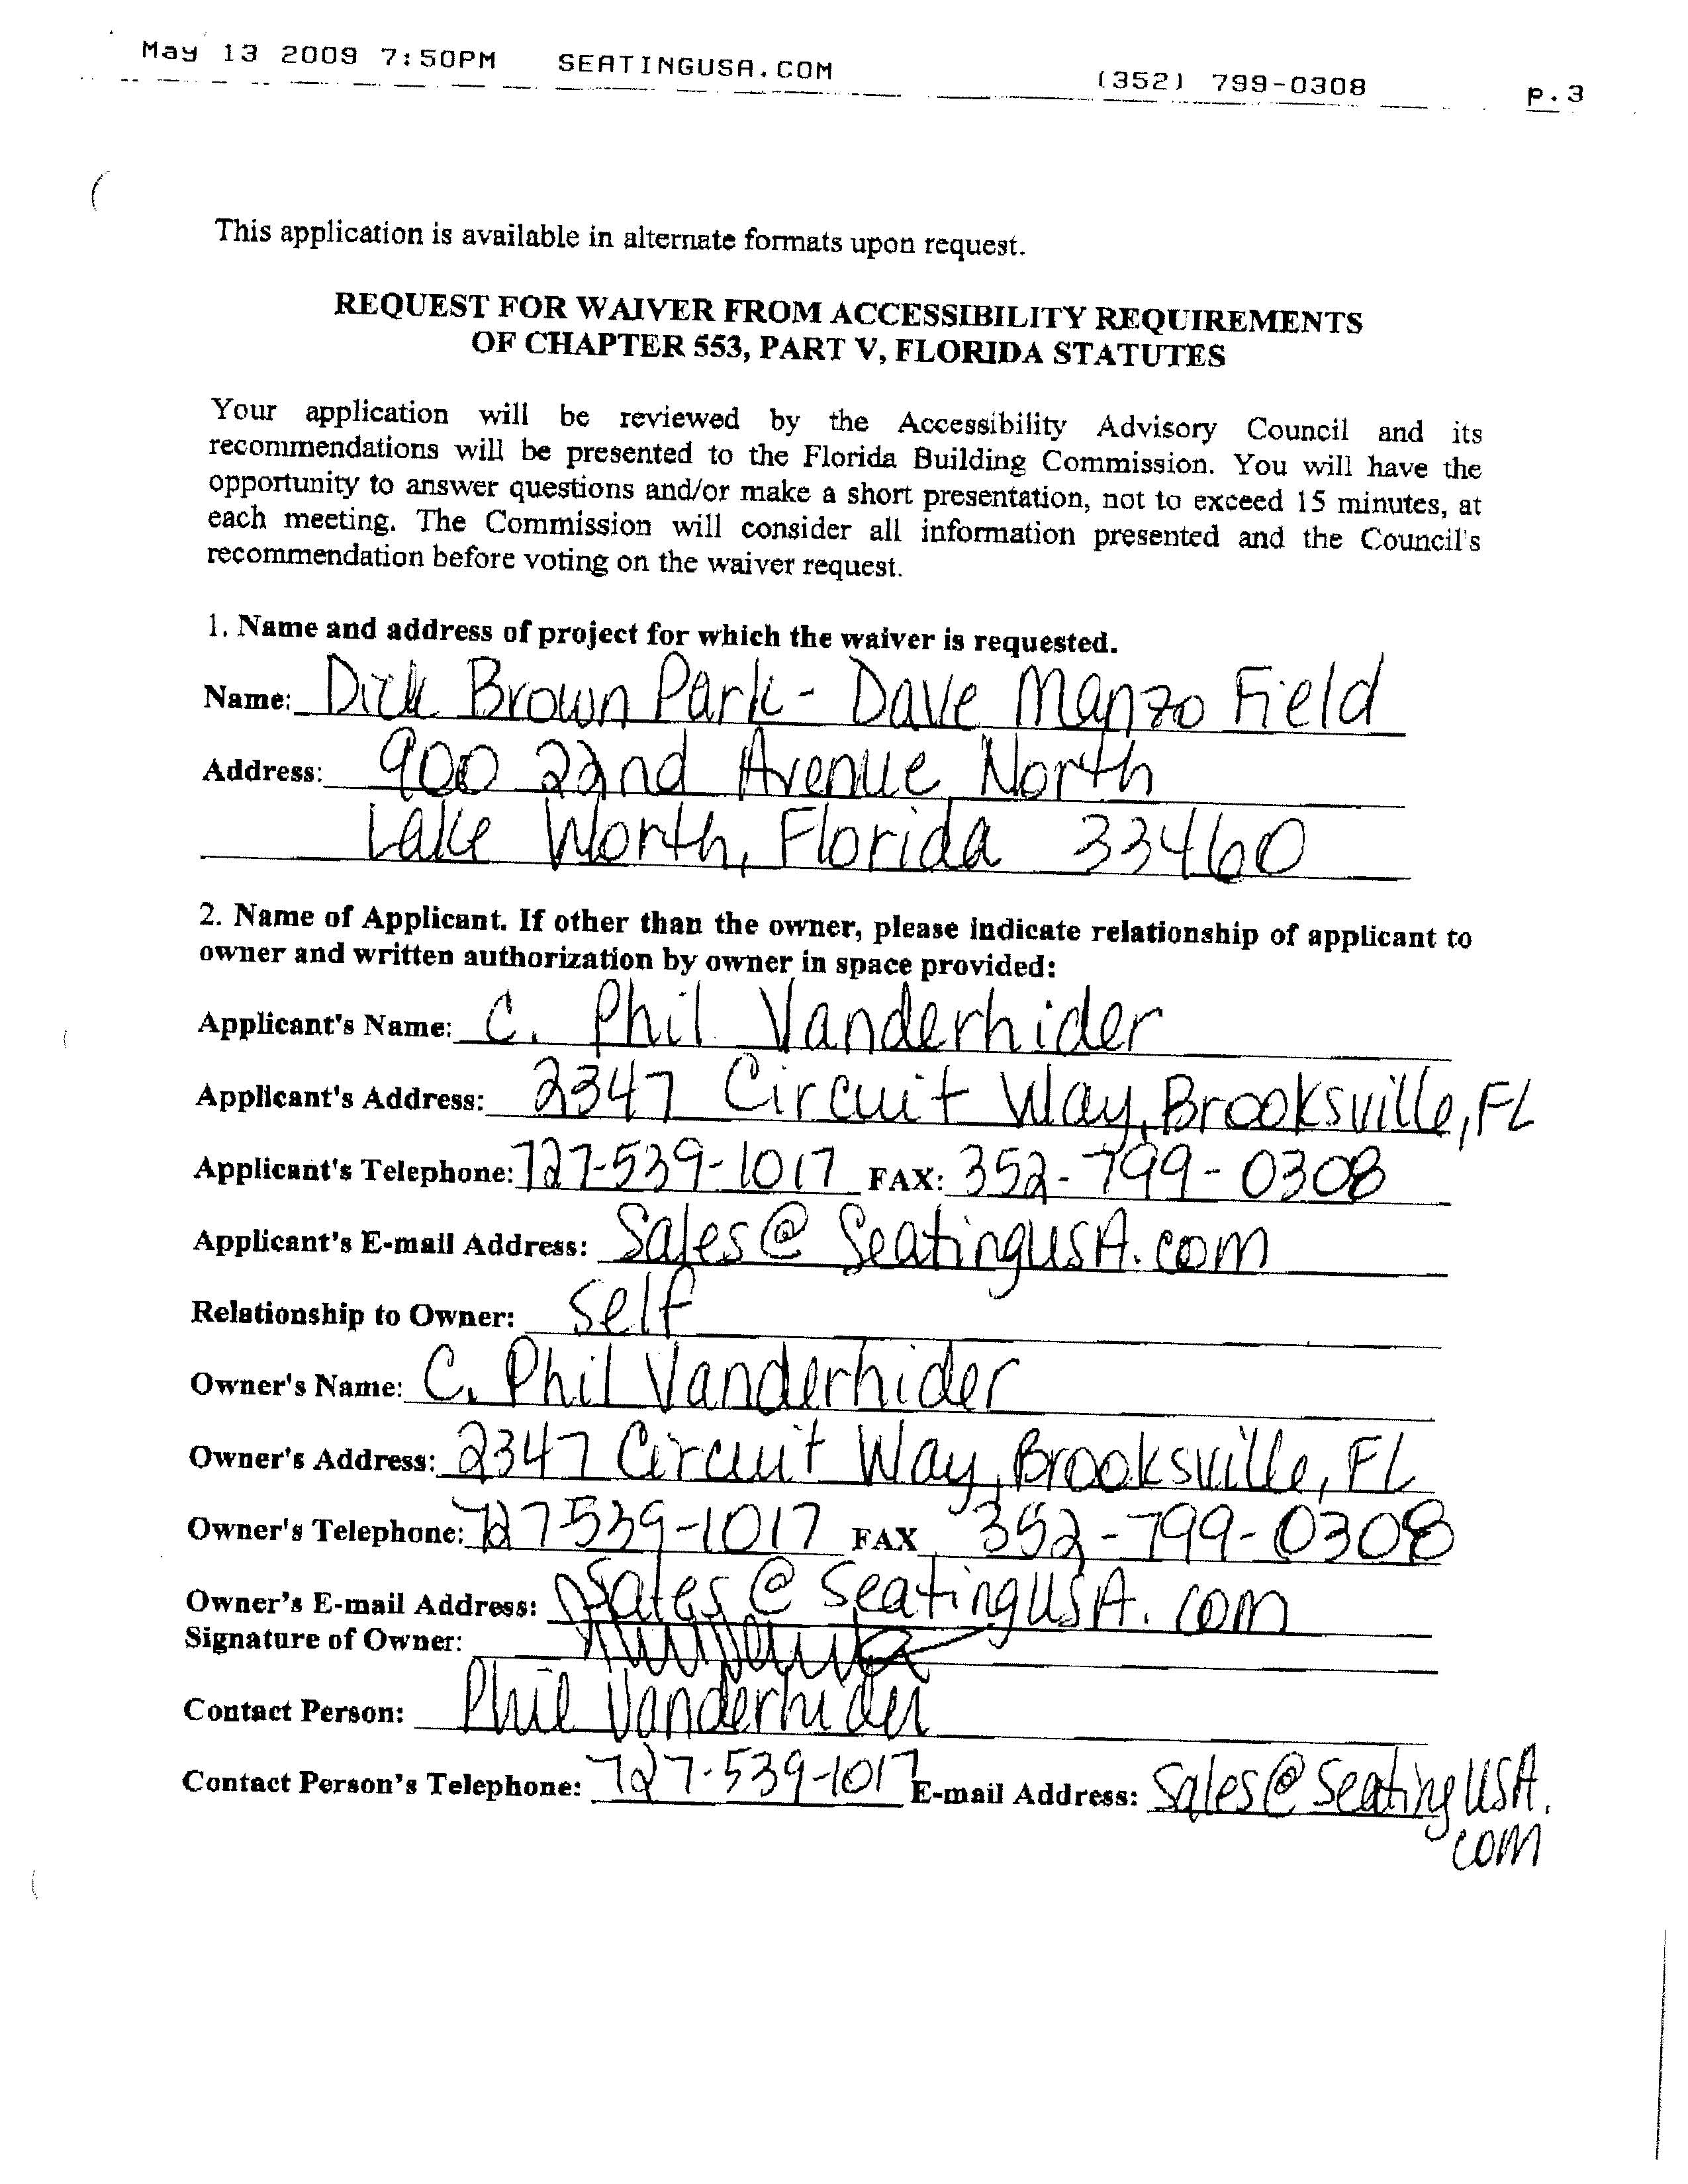 May 13 2009 7:50PM SEATINGUSA.COM (352) 799-0308 p.3
This application is available in alternate formats upon request.
REQUEST FOR WAIVER FROM ACCESSIBILITY REQUIREMENTS
OF CHAPTER 553, PART V, FLORIDA STATUTES
Your application will be reviewed by the Accessibility Advisory Council and its
recommendations will be presented to the Florida Building Commission. You will have the
opportunity to answer questions and/or make a short presentation, not to exceed 15 minutes, at
each meeting. The Commission will consider all information presented and the Council's
recommendation before voting on the waiver request.
1. Name and address of project for which the waiver is requested.
Name: Dick Brown Park - Dave Manzo Field
Address: 900 22nd Avenue North
Lake Worth, Florida 33460
2. Name of Applicant. If other than the owner, please indicate relationship of applicant to
owner and written authorization by owner in space provided:
Applicant's Name: C. Phil Vanderhider
Applicant's Address: 2347 Circuit Way, Brooksville, FL
Applicant's Telephone: 727-539-1017 FAX: 352-799-0308
Applicant's E-mail Address: Sales@SeatingUSA.com
Relationship to Owner: Self
Owner's Name: C. Phil Vanderhider
Owner's Address: 2347 Circuit Way, Brooksville, FL
Owner's Telephone: 727 539-1017 FAX 352-799-0308
Owner's E-mail Address: Sales@SeatingUSA.com
Signature of Owner:
Contact Person: Phil Vanderhider
Contact Person's Telephone: 727-539-1017 E-mail Address: Sales@SeatingUSA.
com